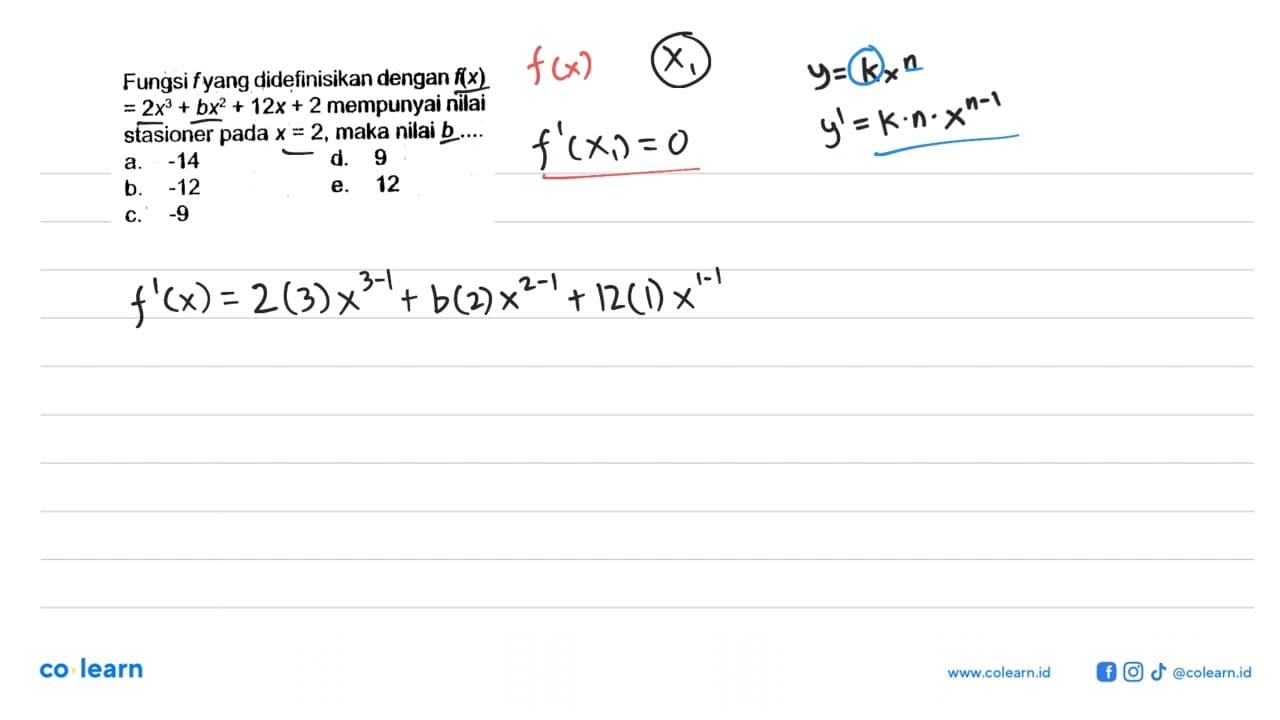 Fungsi f yang didefinisikan dengan f(x)
= 2x³ + bx² + 12x + 2 mempunyai nilai
stasioner pada x = 2, maka nilai b ....
a. -14 d. 9
b. -12 e. 12
c. -9
f(x) x₁
f'(x₁) = 0
y = k x^n
y' = k·n·x^(n-1)
f'(x) = 2(3)x^(3-1) + b(2)x^(2-1) + 12(1)x^(1-1)
co learn
www.colearn.id @colearn.id